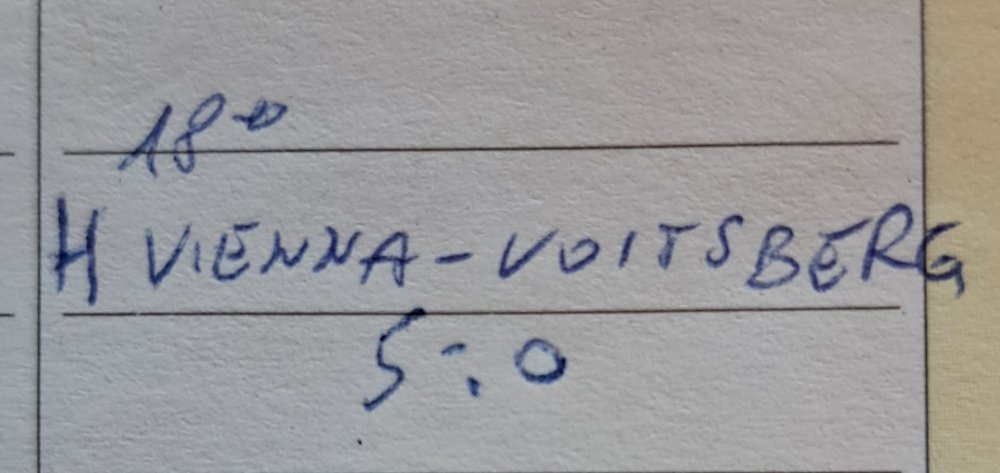 18⁰⁰
H VIENNA-VOITSBERG
5:0